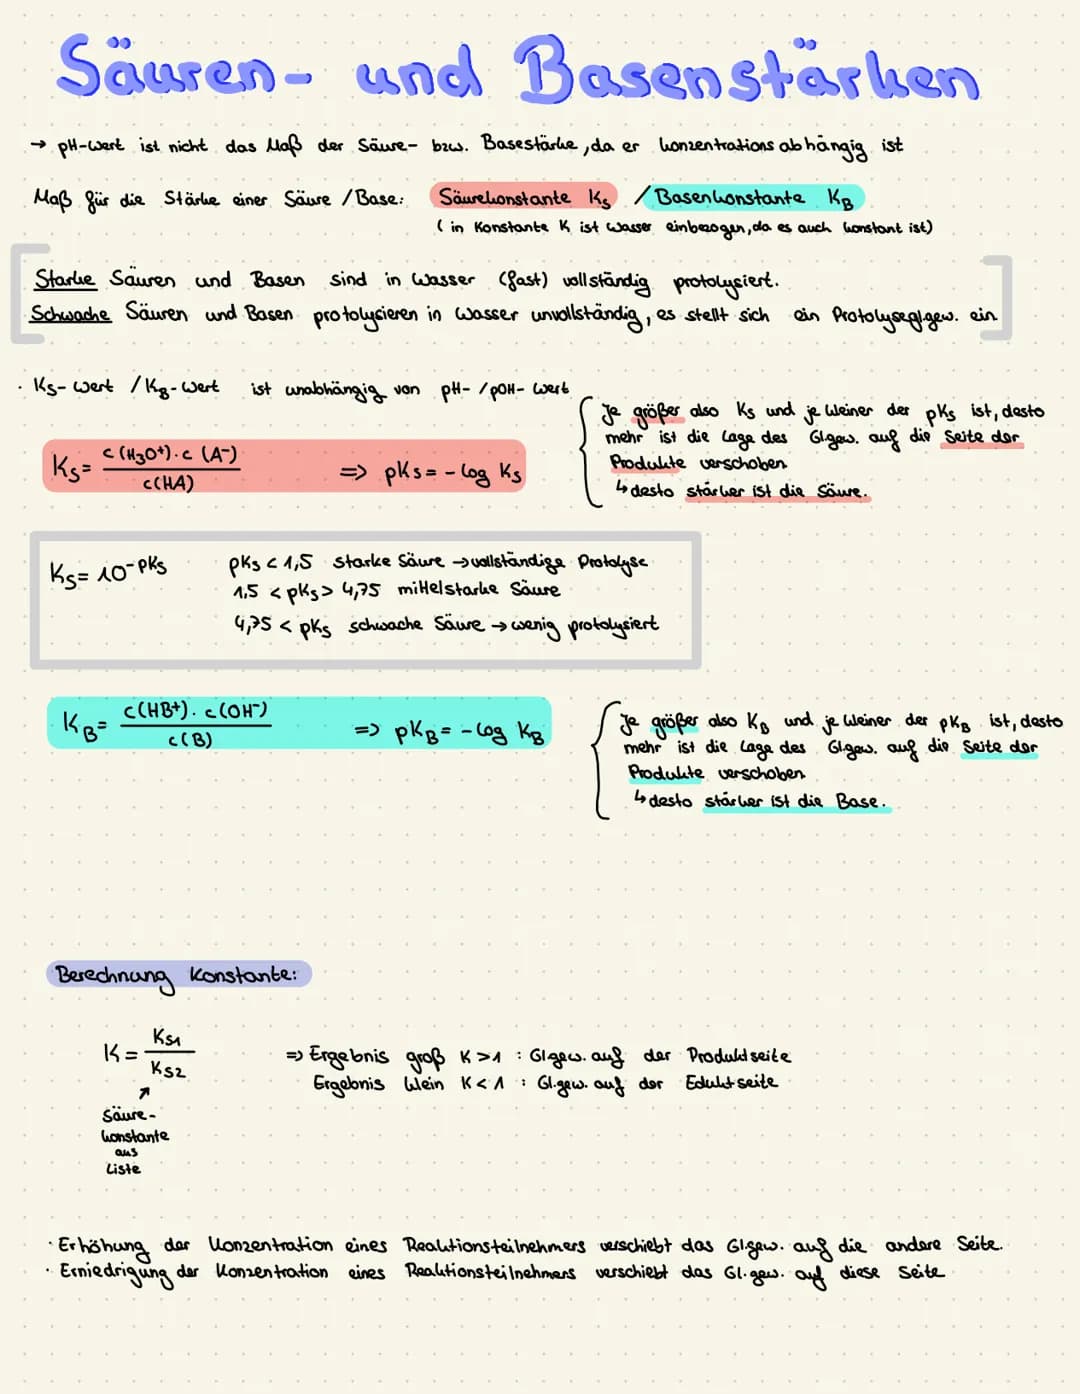 Säuren- und Basenstärken
→ pH-Wert ist nicht das Maß der Säure- bzw. Basestärke, da er konzentrationsabhängig ist
Maß für die Stärke einer Säure / Base: Säurekonstante Ks / Basenkonstante KB
( in Konstante K ist Wasser einbezogen, da es auch konstant ist)
Starke Säuren und Basen sind in Wasser (fast) vollständig protolysiert.
Schwache Säuren und Basen protolysieren in Wasser unvollständig, es stellt sich ein Protolysegl.gew. ein
· Ks-Wert / KB-Wert ist unabhängig von pH- / pOH-Wert
Ks = c(H3O+) · c(A-) / c(HA) => pKs = - log Ks
Je größer also Ks und je kleiner der pKs ist, desto
mehr ist die Lage des Gl.gew. auf die Seite der
Produkte verschoben
↳ desto stärker ist die Säure.
Ks = 10^-pKs
pKs < 1,5 starke Säure → vollständige Protolyse
1,5 < pKs > 4,75 mittelstarke Säure
4,75 < pKs schwache Säure → wenig protolysiert
KB = c(HB+) · c(OH-) / c(B) => pKB = - log KB
Je größer also KB und je kleiner der pKB ist, desto
mehr ist die Lage des Gl.gew. auf die Seite der
Produkte verschoben
↳ desto stärker ist die Base.
Berechnung Konstante:
K = Ks1 / Ks2
=> Ergebnis groß K > 1 : Gl.gew. auf der Produktseite
Ergebnis klein K < 1 : Gl.gew. auf der Eduktseite
↗
Säure-
konstante
aus
Liste
· Erhöhung der Konzentration eines Reaktionsteilnehmers verschiebt das Gl.gew. auf die andere Seite.
· Erniedrigung der Konzentration eines Reaktionsteilnehmers verschiebt das Gl.gew. auf diese Seite